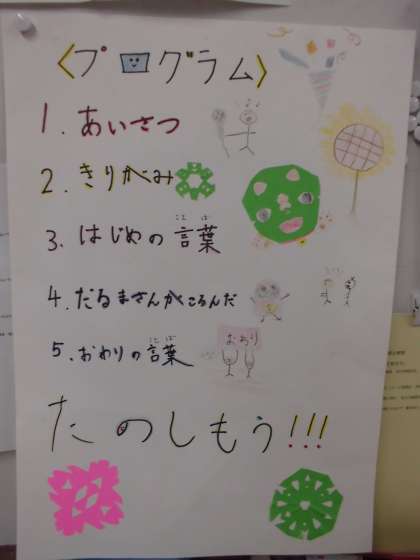 〈プログラム〉
1. あいさつ
2. きりがみ
3. はじめの言葉
ことば
4. だるまさんがころんだ
5. おわりの言葉
ことば
おわり
たのしもう!!!